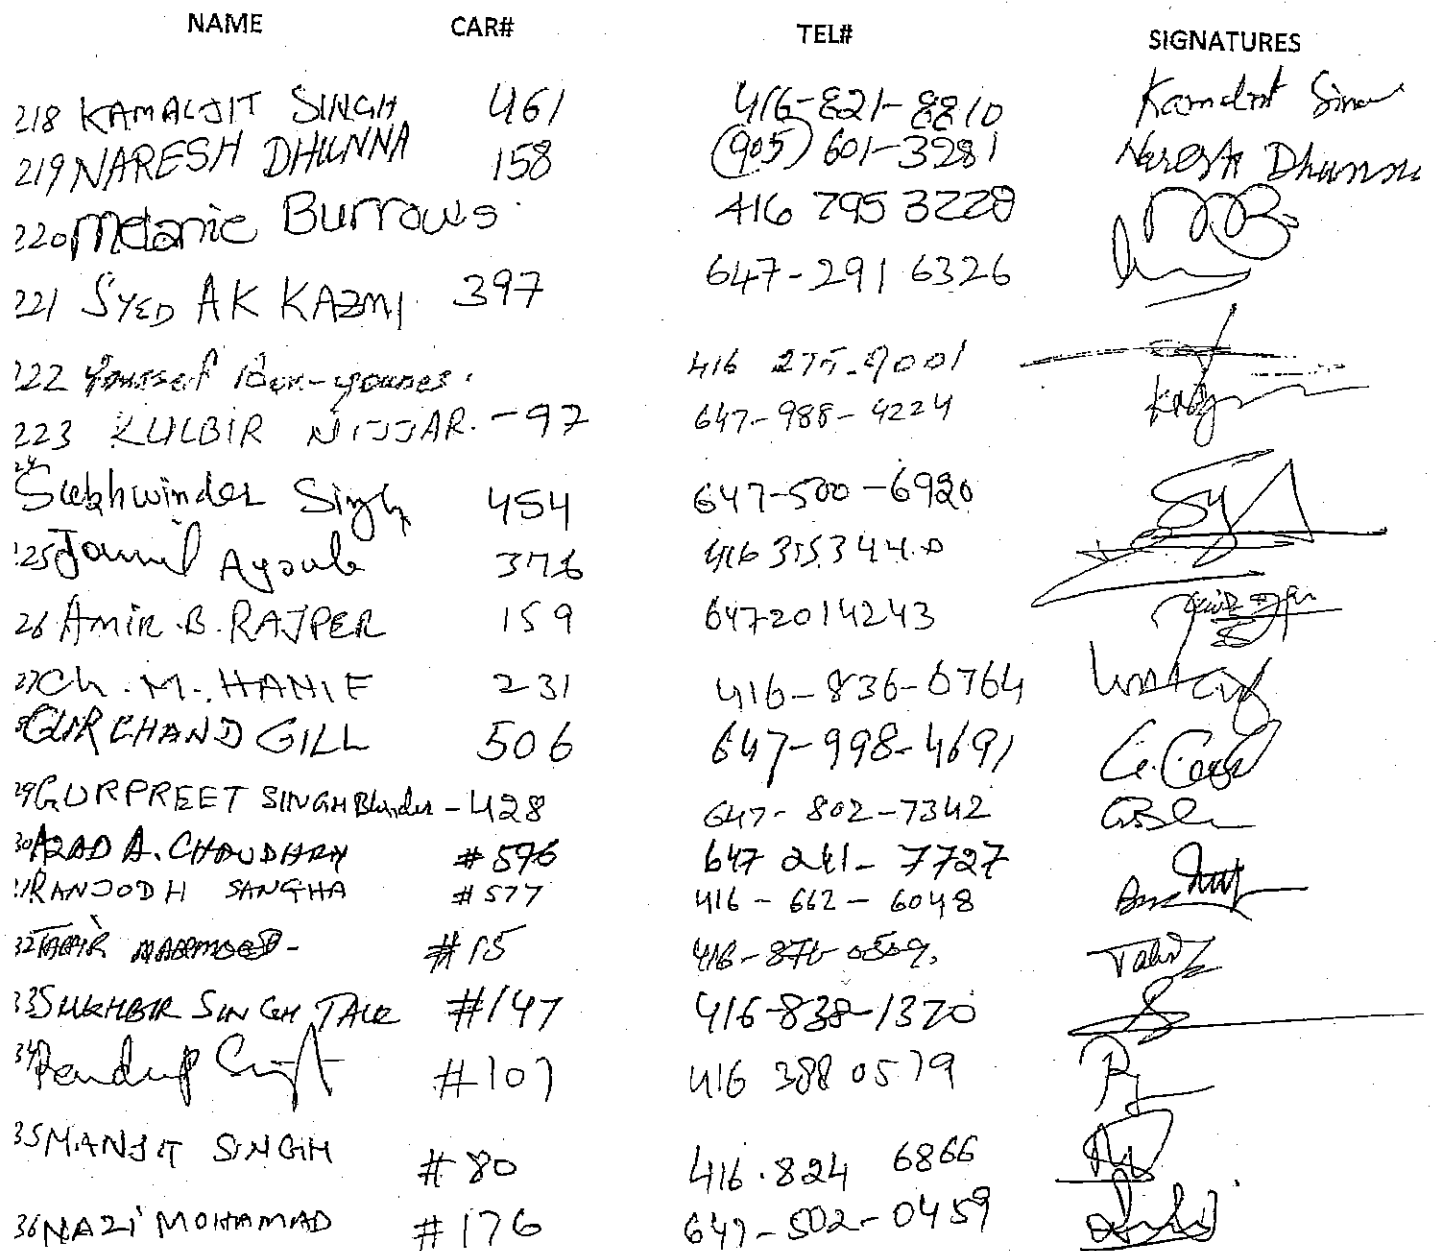 NAME CAR# TEL# SIGNATURES
218 KAMALJIT SINGH 461 416-821-8810
219 NARESH DHUNNA 158 (905) 601-3281 Naresh Dhunna
220 Melanie Burrows 416 795 3228
221 SYED AK KAZMI 397 647-291 6326
222 Youssef Ben-younes. 416 275-9001
223 KULBIR NIJJAR. -97 647-988-4224
24 Sukhwinder Singh 454 647-500-6920
25 Jamil Ayoub 416 315 3440
26 Amir.B.RAJPER 159 6472014243
27 Ch.M.HANIF 231 416-836-6764
GURCHAND GILL 506 647-998-4691
29 GURPREET SINGH -428 647-802-7342
30 AZAD A. CHOUDHRY #576 647 241-7727
RANJODH SANGHA #577 416-662-6048
32 TAHIR MAHMOOD- #15 Tahir
33 SUKHBIR SINGH #147 416-838-1370
34 #107 416 388 0579
35 MANJIT SINGH #80 416.824 6866
36 NAZI MOHAMAD #176 647-502-0459